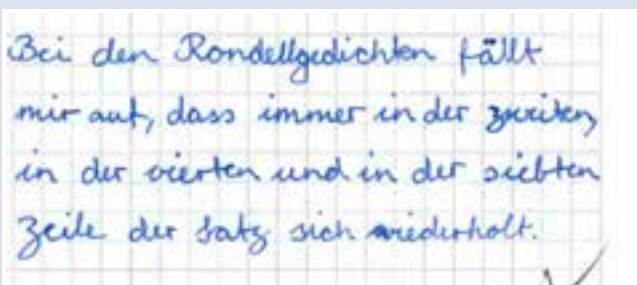 Bei den Rondellgedichten fällt
mir auf, dass immer in der zweiten,
in der vierten und in der siebten
Zeile der Satz sich wiederholt.